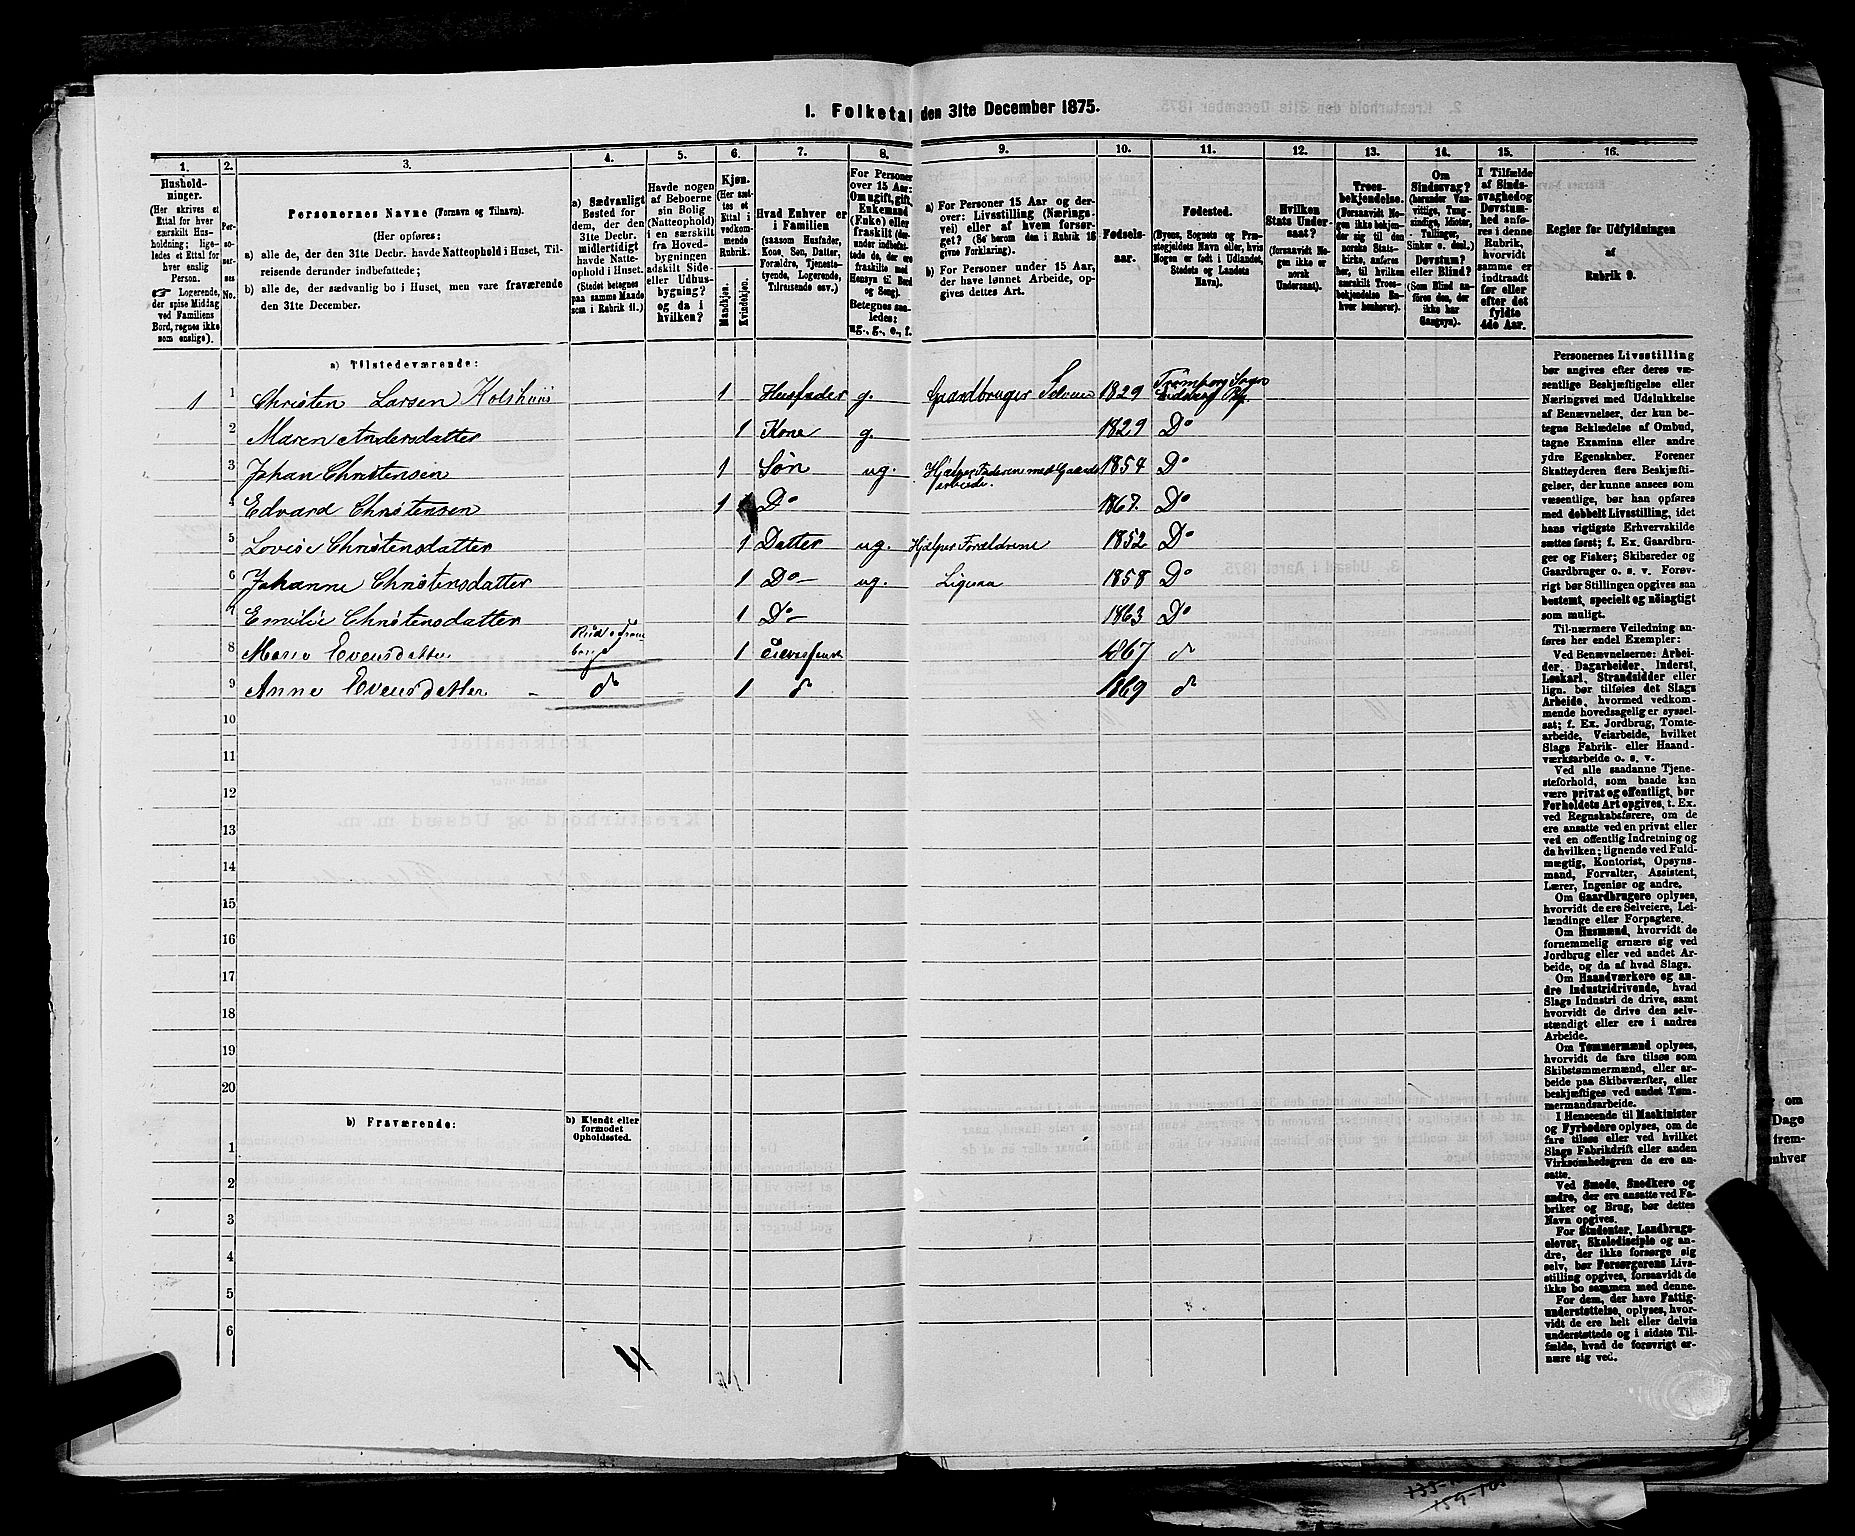 I. Folketal den 31te December 1875.
1. 2. 3. 4. 5. 6. 7. 8. 9. 10. 11. 12. 13. 14. 15. 16.
Husholdninger.
(Her skrives et
Ettal for hver
særskilt Husholdning;
ligeledes et Ettal for
hver enslig
Person.
☞ Logerende,
der spise Middag
ved Familiens
Bord, regnes ikke
som enslige).
Personernes No.
Personernes Navne (Fornavn og Tilnavn).
(Her opføres:
a) alle de, der den 31te Decbr. havde Natteophold i Huset, Tilreisende derunder indbefattede;
b) alle de, der sædvanlig bo i Huset, men vare fraværende
den 31te December.
a) Sædvanligt
Bosted for
dem, der den
31te Decbr.
midlertidigt
havde Natteophold
i Huset.
(Stedet betegnes
paa samme Maade
som i Rubrik 11.)
Havde nogen
af Beboerne
sin Bolig
(Natteophold)
i en særskilt
fra Hovedbygningen
adskilt Side-
eller Udhusbygning?
og da i
hvilken?
Kjøn.
(Her sættes
et
Ettal i
vedkommende
Rubrik.
Mandkjøn.
Kvindekjøn.
Hvad Enhver er
i Familien
(saasom Husfader,
Kone, Søn, Datter,
Forældre, Tjenestetyende,
Logerende,
Tilreisende osv.)
For Personer
over 15 Aar:
Om ugift, gift,
Enkemand
(Enke) eller
fraskilt (derunder
indbefattede
de, der ere
fraskilte med
Hensyn til Bord
og Seng).
Betegnes saaledes:
ug., g., e., f.
a) For Personer 15 Aar og derover:
Livsstilling (Næringsvei)
eller af hvem forsørget?
(Se herom den i Rubrik 16
givne Forklaring).
b) For Personer under 15 Aar,
der have lønnet Arbeide, opgives
dettes Art.
Fødselsaar.
Fødested.
(Byens, Sognets og Præstegjeldets
Navn eller, hvis
Nogen er født i Udlandet,
Stedets og Landets
Navn).
Hvilken
Stats Undersaat?
(forsaavidt Nogen
ikke er
norsk
Undersaat).
Troesbekjendelse.
(Forsaavidt Nogen
ikke bekjender
sig til den
norske Statskirke,
anføres
her, til hvilken
særskilt Troesbekjendelse
Enhver
henhører).
Om
Sindssvag?
(herunder Vanvittige,
Tungsindige,
Idioter,
Tullinger,
Sinker o. desl.)
Døvstum?
eller Blind?
(Som Blind anføres
den, der
ikke har
Gangsyn).
I Tilfælde
af Sindssvaghed
og
Døvstumhed
anføres
i denne
Rubrik,
hvorvidt
samme er
indtraadt
før eller
efter det
fyldte
4de Aar.
Regler for Udfyldningen
af
Rubrik 9.
a) Tilstedeværende:
1 1 Christen Larsen Kolshuus 1 Husfader g. Gaardbruger Selveier 1829 Trømborg Sogn Eidsberg Pgj.
2 Maren Andersdatter 1 Kone g. 1829 Do
3 Johan Christensen 1 Søn ug. Hjælper Faderen med Gaardsarbeide. 1854 Do
4 Edvard Christensen 1 Do 1867. Do
5 Lovise Christensdatter 1 Datter ug. Hjælper Forældrene 1852 Do
6 Johanne Christensdatter 1 Do ug. Ligesaa 1858 Do
7 Emilie Christensdatter 1 Do 1863 Do
8 Maria Evensdatter 1 1867 do
9 Anne Evensdatter do 1 do 1869 do
10
11
12
13
14
15
16
17
18
19
20
b) Fraværende:
b) Kjendt eller
formodet
Opholdssted.
1
2
3
4
5
6
Personernes Livsstilling
bør angives efter deres væsentlige
Beskjæftigelse eller
Næringsvei med Udelukkelse
af Benævnelser, der kun betegne
Beklædelse af Ombud,
tagne Examina eller andre
ydre Egenskaber. Forener
Skatteyderen flere Beskjæftigelser,
der kunne ansees som
væsentlige, bør han opføres
med dobbelt Livsstilling, idet
hans vigtigste Erhvervskilde
sættes først; f. Ex. Gaardbruger
og Fisker; Skibsreder og
Gaardbruger o. s. v. Forøvrigt
bør Stillingen opgives saa
bestemt, specielt og nøiagtigt
som muligt.
Til nærmere Veiledning anføres
her endel Exempler:
Ved Benævnelserne: Arbeider,
Dagarbeider, Inderst,
Løskarl, Strandsidder eller
lign. bør tilføies det Slags
Arbeide, hvormed vedkommende
hovedsagelig er sysselsat;
f. Ex. Jordbrug, Tomtearbeide,
Veiarbeide, hvilket
Slags Fabrik- eller Haandværksarbeide
o. s. v.
Ved alle saadanne Tjenesteforhold,
som baade kan
være privat og offentligt, bør
Forholdets Art opgives, t. Ex.
ved Regnskabsførere, om de
ere ansatte ved en privat eller
ved en offentlig Indretning og
da hvilken; lignende ved Fuldmægtig,
Kontorist, Opsynsmand,
Forvalter, Assistent,
Lærer, Ingeniør og andre.
Om Gaardbrugere oplyses,
hvorvidt de ere Selveiere, Leilændinge
eller Forpagtere.
Om Husmænd, hvorvidt de
fornemmelig ernære sig ved
Jordbrug eller ved andet Arbeide,
og da af hvad Slags.
Om Haandværkere og andre
Industridrivende, hvad
Slags Industri de drive, samt
hvorvidt de drive den selvstændigt
eller ere i andres
Arbeide.
Om Tømmermænd oplyses,
hvorvidt de fare tilsøs som
Skibstømmermænd, eller arbeide
paa Skibsværfter, eller
beskjæftiges ved andet Tømmermandsarbeide.
I Henseende til Maskinister
og Fyrbødere oplyses, om de
fare tilsøs eller ved hvilket
Slags Fabrikdrift eller anden
Virksomhedsgren de ere ansatte.
Ved Smede, Snedkere og
andre, der ere ansatte ved Fabriker
og Brug, bør dettes
Navn opgives.
For Studenter, Landbrugselever,
Skoledisciple og andre,
der ikke forsørge sig
selv, bør Forsørgerens Livsstilling
opgives, forsaavidt de
ikke bo sammen med denne.
For dem, der have Fattigunderstøttelse,
oplyses, hvorvidt
de ere helt eller delvis
understøttede og i sidste Tilfælde,
hvad de forøvrigt ernære
sig ved.